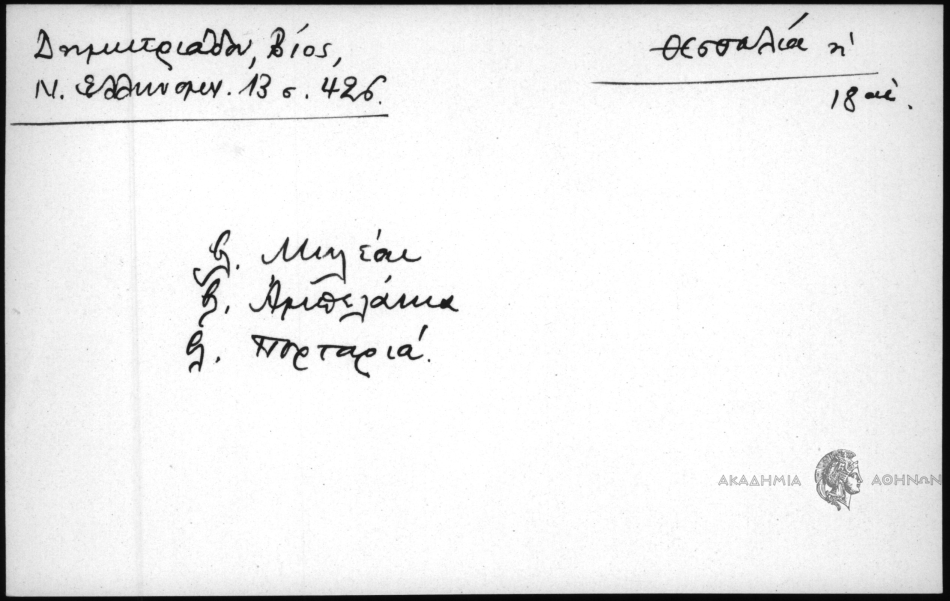 Δημητριάδου, Βίος,
Ν. Ελληνομν. 13 σ. 426.
Θεσσαλία η'
18 αἰ.
β. Μηλέαι
β. Ἀμπελάκια
β. Πορταριά.
ΑΚΑΔΗΜΙΑ ΑΘΗΝΩΝ